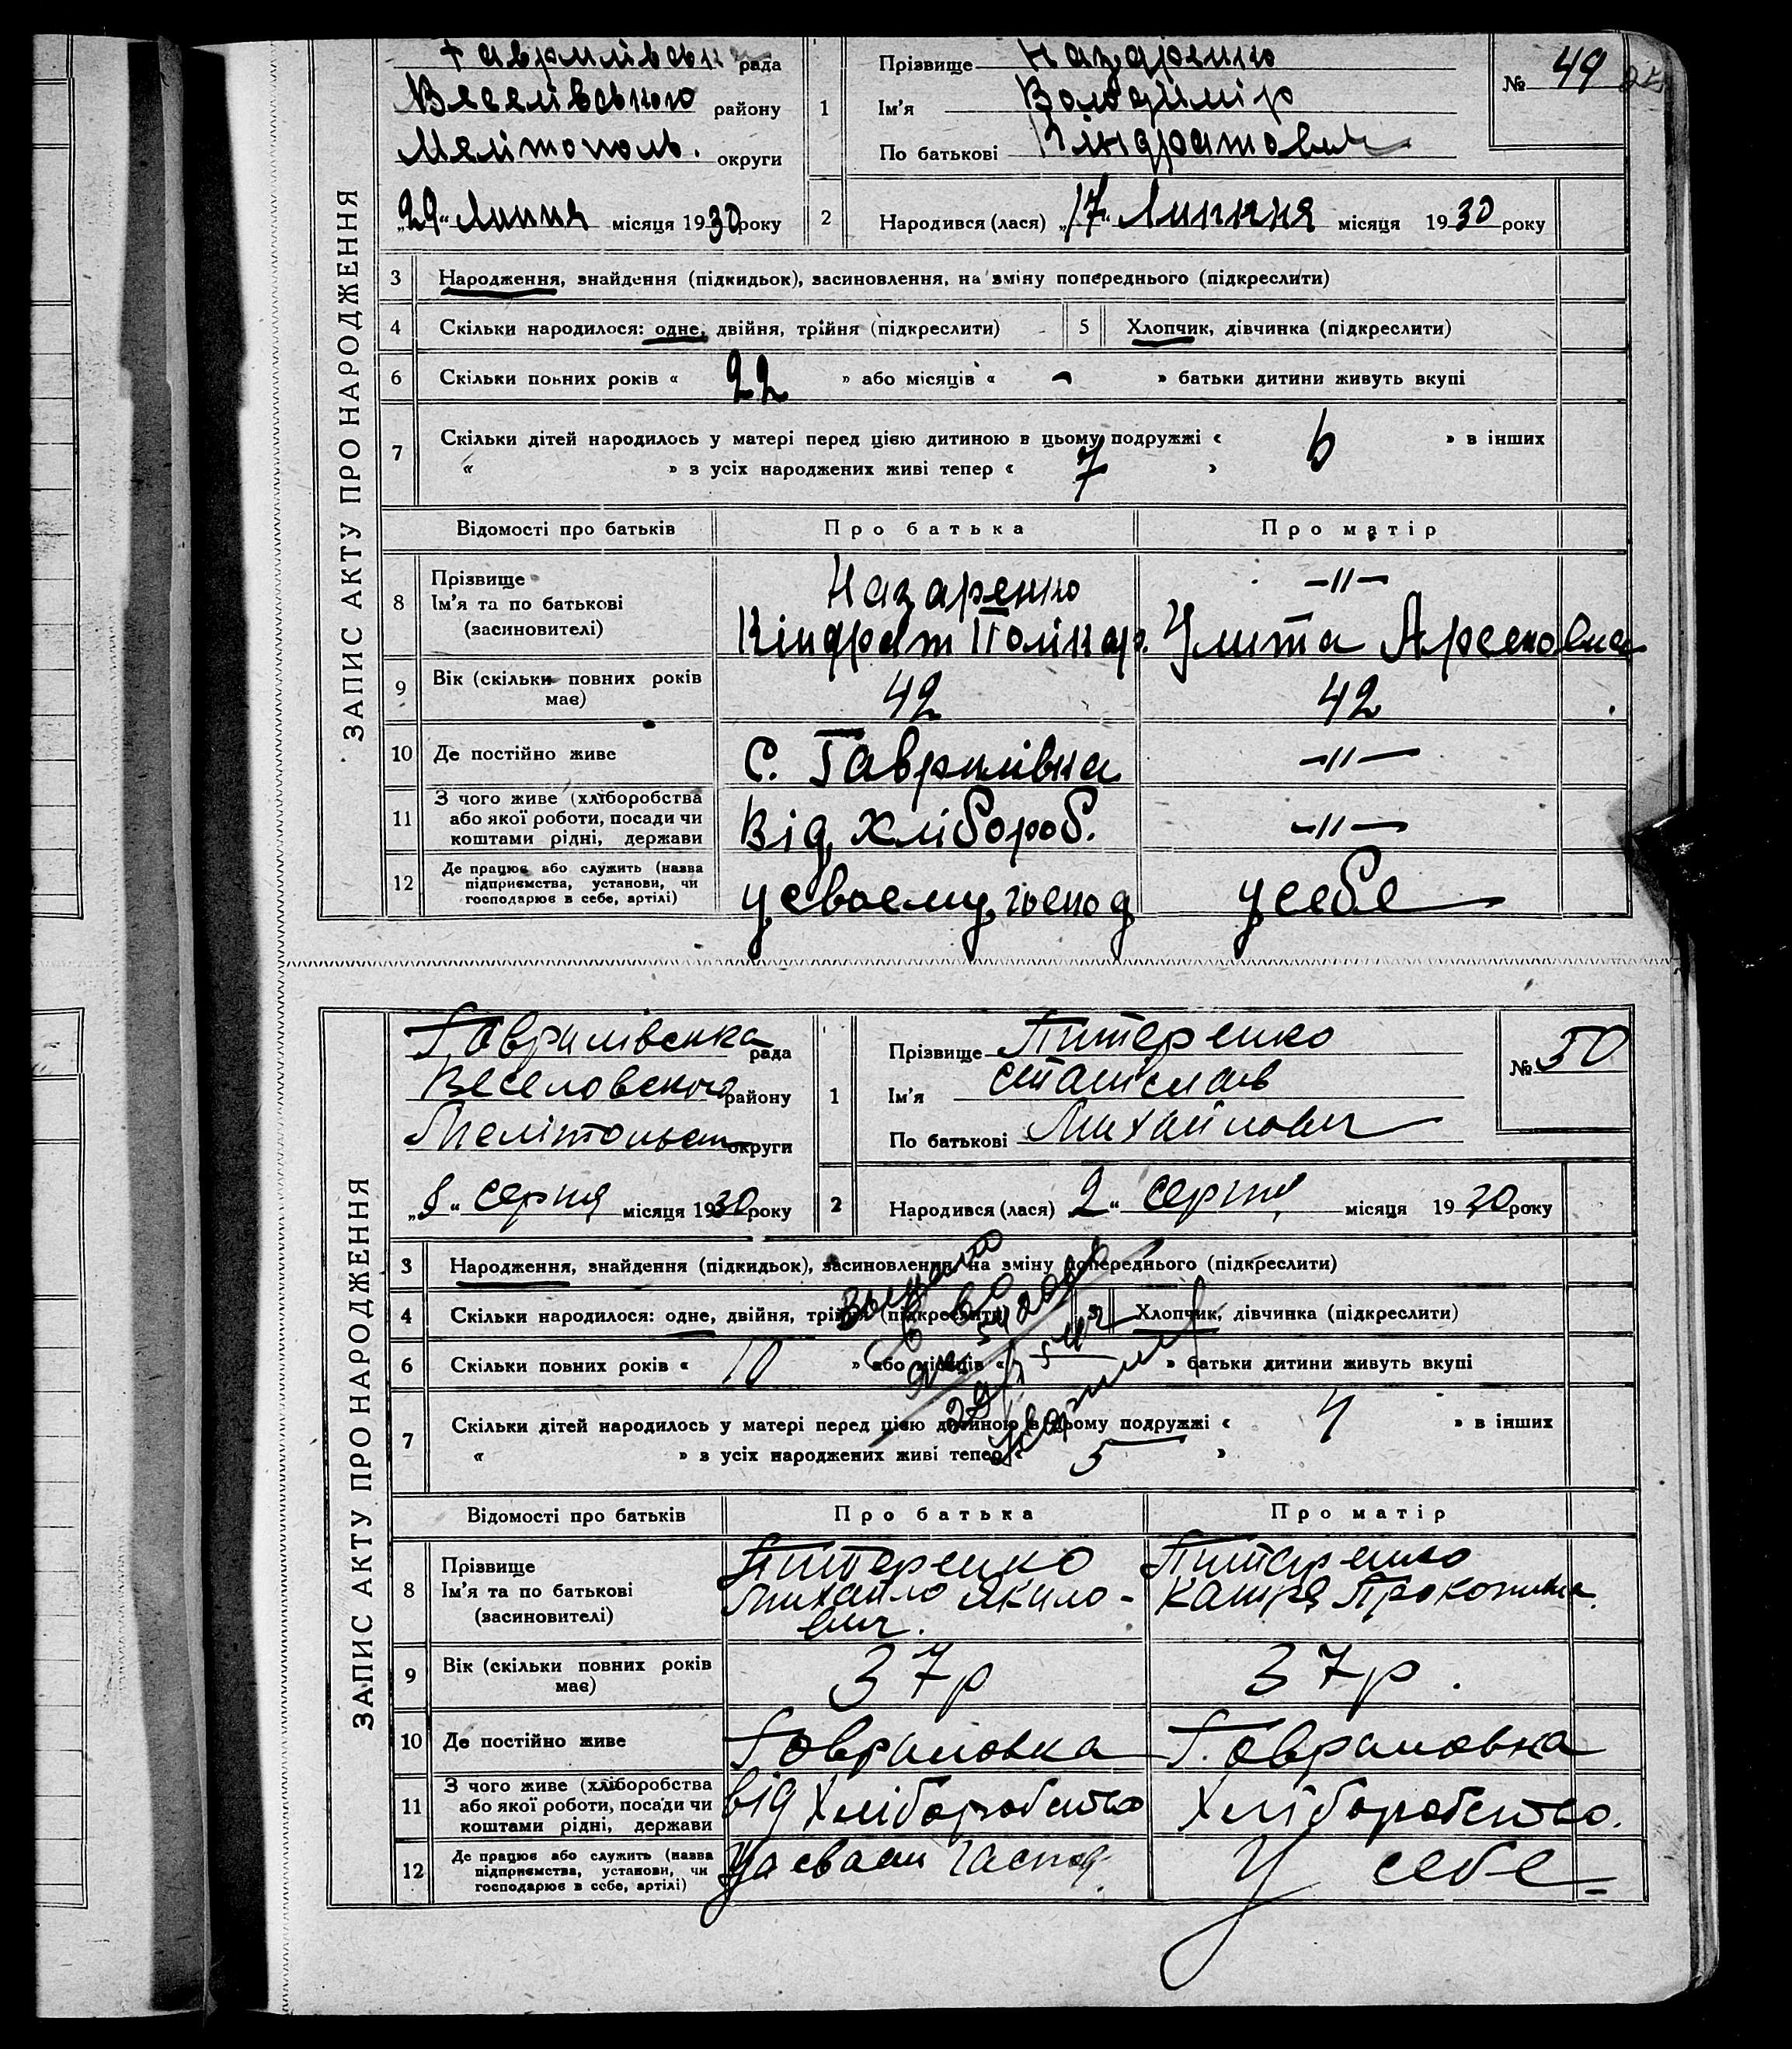 ЗАПИС АКТУ ПРО НАРОДЖЕННЯ
Гаврилівськ рада
Веселівського району
Мелітополь. округи
„29" Липня місяця 1930 року
1 Прізвище Назаренко
Ім'я Володимір
По батькові Кіндратович
№ 49
2 Народився (лася) „17" Липня місяця 1930 року
3 Народження, знайдення (підкидьок), засиновлення, на зміну попереднього (підкреслити)
4 Скільки народилося: одне, двійня, трійня (підкреслити) 5 Хлопчик, дівчинка (підкреслити)
6 Скільки повних років « 22 » або місяців « - » батьки дитини живуть вкупі
7 Скільки дітей народилось у матері перед цією дитиною в цьому подружжі « 6 » в інших
« » з усіх народжених живі тепер « 7 »
Відомості про батьків Про батька Про матір
8 Прізвище Назаренко —„—
Ім'я та по батькові
(засиновителі) Кіндрат Полікар. Улита Арсеновна
9 Вік (скільки повних років має) 42 42
10 Де постійно живе С. Гаврилівка —„—
11 З чого живе (хліборобства
або якої роботи, посади чи
коштами рідні, держави Від хлібороб. —„—
12 Де працює або служить (назва
підприємства, установи, чи
господарює в себе, артілі) у своему господ у себе
ЗАПИС АКТУ ПРО НАРОДЖЕННЯ
Гаврилівська рада
Веселовского району
Мелітопольск округи
„8" серпня місяця 1930 року
1 Прізвище Питеренко
Ім'я Станіслав
По батькові Михайлович
№ 50
2 Народився (лася) 2" серпня місяця 1930 року
3 Народження, знайдення (підкидьок), засиновлення, на зміну попереднього (підкреслити)
4 Скільки народилося: одне, двійня, трійня (підкреслити) 5 Хлопчик, дівчинка (підкреслити)
6 Скільки повних років « 10 » або місяців « » батьки дитини живуть вкупі
7 Скільки дітей народилось у матері перед цією дитиною в цьому подружжі « 4 » в інших
« » з усіх народжених живі тепер « 5 »
Відомості про батьків Про батька Про матір
8 Прізвище Питеренко Питеренко
Ім'я та по батькові Михайло Якимо- Катря Прокопивна
(засиновителі) вич.
9 Вік (скільки повних років має) 37р 37р.
10 Де постійно живе Говриловка Г. овриловка
11 З чого живе (хліборобства
або якої роботи, посади чи
коштами рідні, держави від хліборобства хліборобство.
12 Де працює або служить (назва
підприємства, установи, чи
господарює в себе, артілі) господ. У себе